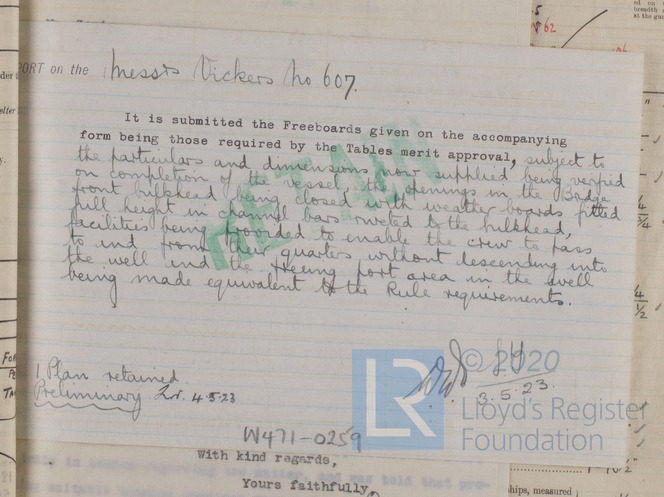 PORT on the Messrs Vickers No 607.
It is submitted the Freeboards given on the accompanying
form being those required by the Tables merit approval, subject to
the particulars and dimensions now supplied being verified
on completion of the vessel, the openings in the Bridge
front bulkhead being closed with weather boards fitted
full height in channel bars riveted to the bulkhead,
facilities being provided to enable the crew to pass
to and from their quarters without descending into
the well and the freeing port area in the well
being made equivalent to the Rule requirements.
RETAIN
1 Plan retained.
Preliminary 4.5.23
3.5.23.
W471-0259
© 2020
LR
Lloyd's Register
Foundation
With kind regards,
Yours faithfully,
and was told that
ships, measured
62